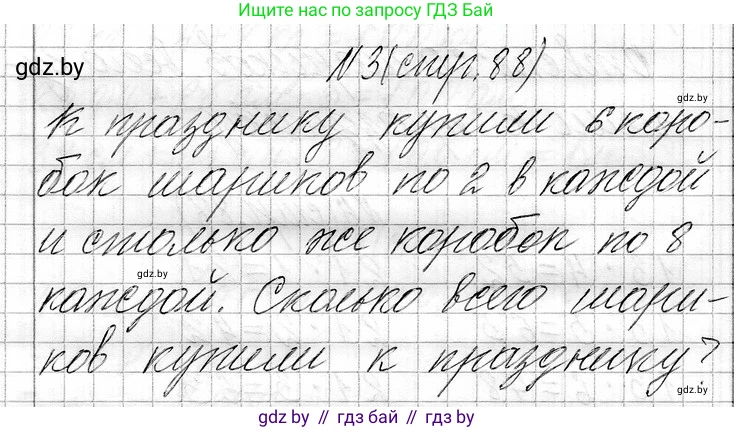 Ищите нас по запросу ГДЗ Бай
gdz.by
N 3 (стр. 88)
gdz.by
К празднику купили 6 коро-
бок шариков по 2 в каждой
и столько же коробок по 8
gdz.by
каждой. Сколько всего шари-
ков купили к празднику?
gdz.by
gdz.by // гдз бай // гдз by